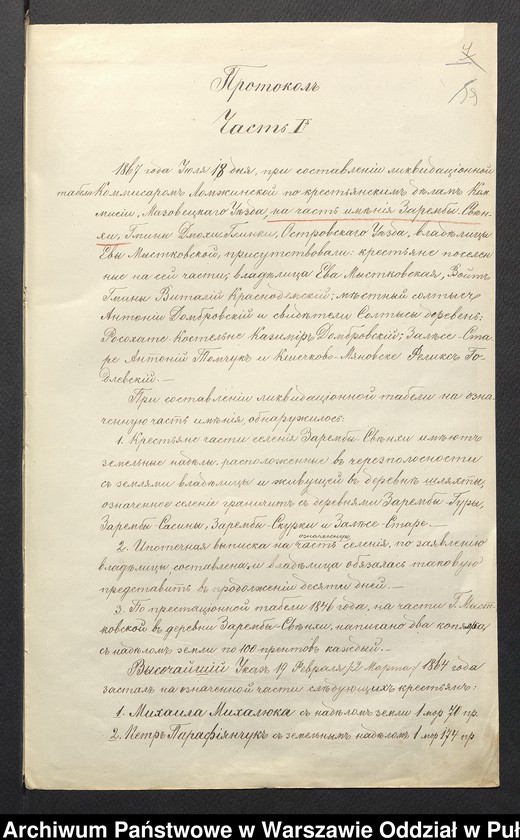 Протоколъ
Часть Iя
1867 года Іюля 18 дня, при составленіи ликвидаціонной
табели Коммисаромъ Ломжинской по крестьянскимъ дѣламъ Ком
мисіи, Мазовецкаго Уѣзда, на часть имѣнія Зарембы-Свѣн
хи, Гмины Островскаго Уѣзда, владѣлицы
Евы Мыстковской, присутствовали: крестьяне поселен
ные на сей части; владѣлица Ева Мыстковская, Войтъ
Гмины Виталій мѣстный солтысъ
Антоній Домбровскій и свидѣтели Солтысы деревень:
Росохате Костельне Казиміръ Домбровскій; Залѣсе-Ста
ре Антоній Томчукъ и Кличково-Мяновске Феликсъ Го-
длевскій. —
При составленіи ликвидаціонной табели на озна
ченную часть имѣнія, обнаружилось:
1. Крестьяне части селенія Зарембы-Свѣнхи имѣютъ
земельные надѣлы, расположенные въ черезполосности
съ землями владѣлицы и живущей въ деревнѣ шляхты,
означенное селеніе граничитъ съ деревнями Зарембы-Гуры,
Зарембы-Сасины, Зарембы-Скурки и Залѣсе-Старе. —
2. Ипотечная выписка на означенную часть селенія, по заявленію
владѣлицы составлена, и владѣлица обязалась таковую
представить въ продолженіи десяти дней. —
3. По престаціонной табели 1846 года, на части Г. Мыст-
ковской въ деревни Зарембы-Свѣнхи, написано два
съ надѣломъ земли по 100 прентовъ каждый. —
Высочайшій Указъ 19 Февраля /2 Марта/ 1864 года
засталъ на означенной части слѣдующихъ крестьянъ:
1. Михаила Михалюка съ надѣломъ земли 1 мор 70 пр.
2. Петръ Парафіянчукъ съ земельнымъ надѣломъ 1 мор 174 пр
Archiwum Państwowe w Warszawie Oddział w Puł